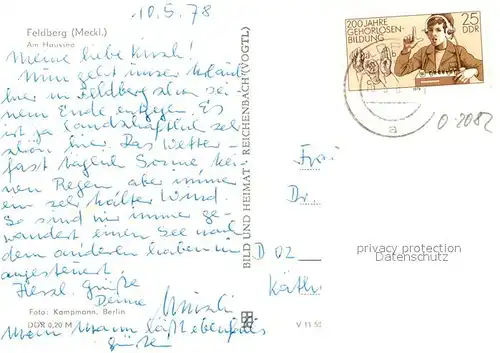 10.5.78
Feldberg (Meckl.)
Am Haussee
Meine liebe
Nun geht unser Urlaub
hier in Feldberg schon sei
nem Ende entgegen. Es
ist ja landschaftlich sehr
schön hier. Das Wetter -
fast täglich Sonne kei
nen Regen aber immer
ein sehr kalter Wind.
So sind wir immer ge-
wandert einen See nach
dem anderen haben wir
angesteuert.
Herzl. Grüße
Deine
Foto: Kampmann, Berlin
DDR 0,20 M
Mein Mann läßt ebenfalls
grüßen
BILD UND HEIMAT · REICHENBACH (VOGTL)
V 11 50
200 JAHRE
GEHÖRLOSEN-
BILDUNG
25
DDR
a
O-2082
Frau
Dr.
D 02
Käth
privacy protection
Datenschutz